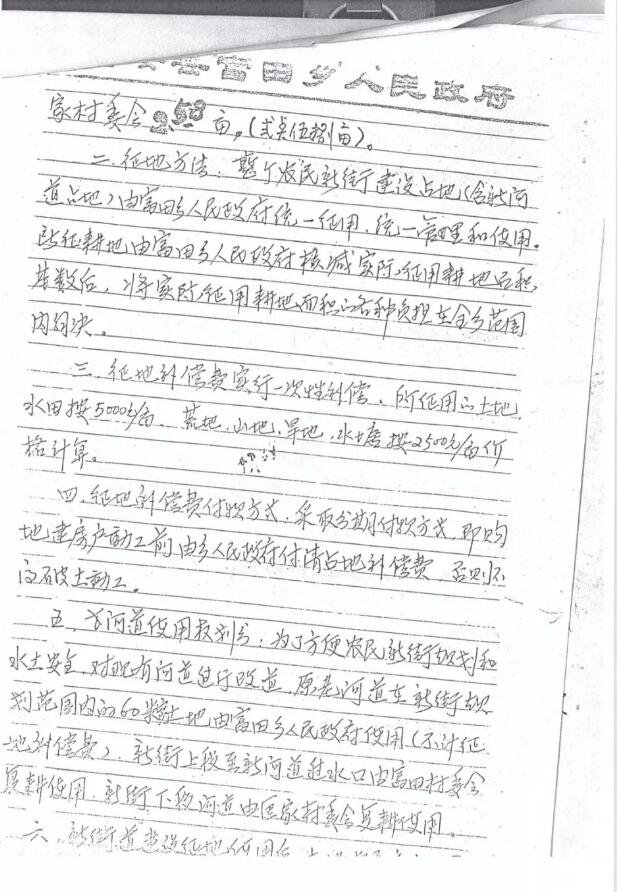 县富田乡人民政府
家村委会2.58亩，(弍点伍捌亩)。
二、征地方法：整个农民新街建设占地(含新河
道占地)由富田乡人民政府统一征用、统一管理和使用。
所征耕地由富田乡人民政府核减实际征用耕地面积
基数后，将实际征用耕地面积的各种负担在全乡范围
内解决。
三、征地补偿费实行一次性补偿，所征用的土地
水田按5000元/亩、荒地、山地、旱地、水塘按2500元/亩价
格计算。
四、征地补偿费付款方式：采取分期付款方式，即购
地建房户动工前由乡人民政府付清占地补偿费，否则不
向破土动工。
五、河道使用权划分：为了方便农民新街规划和
水土安全，对现有河道进行改道，原老河道在新街规
划范围内的60米土地由富田乡人民政府使用(不计征
地补偿费)，新街上段至新河道进水口由富田村委会
复耕使用，新街下段河道由匡家村委会复耕使用。
六、新街道建设征地